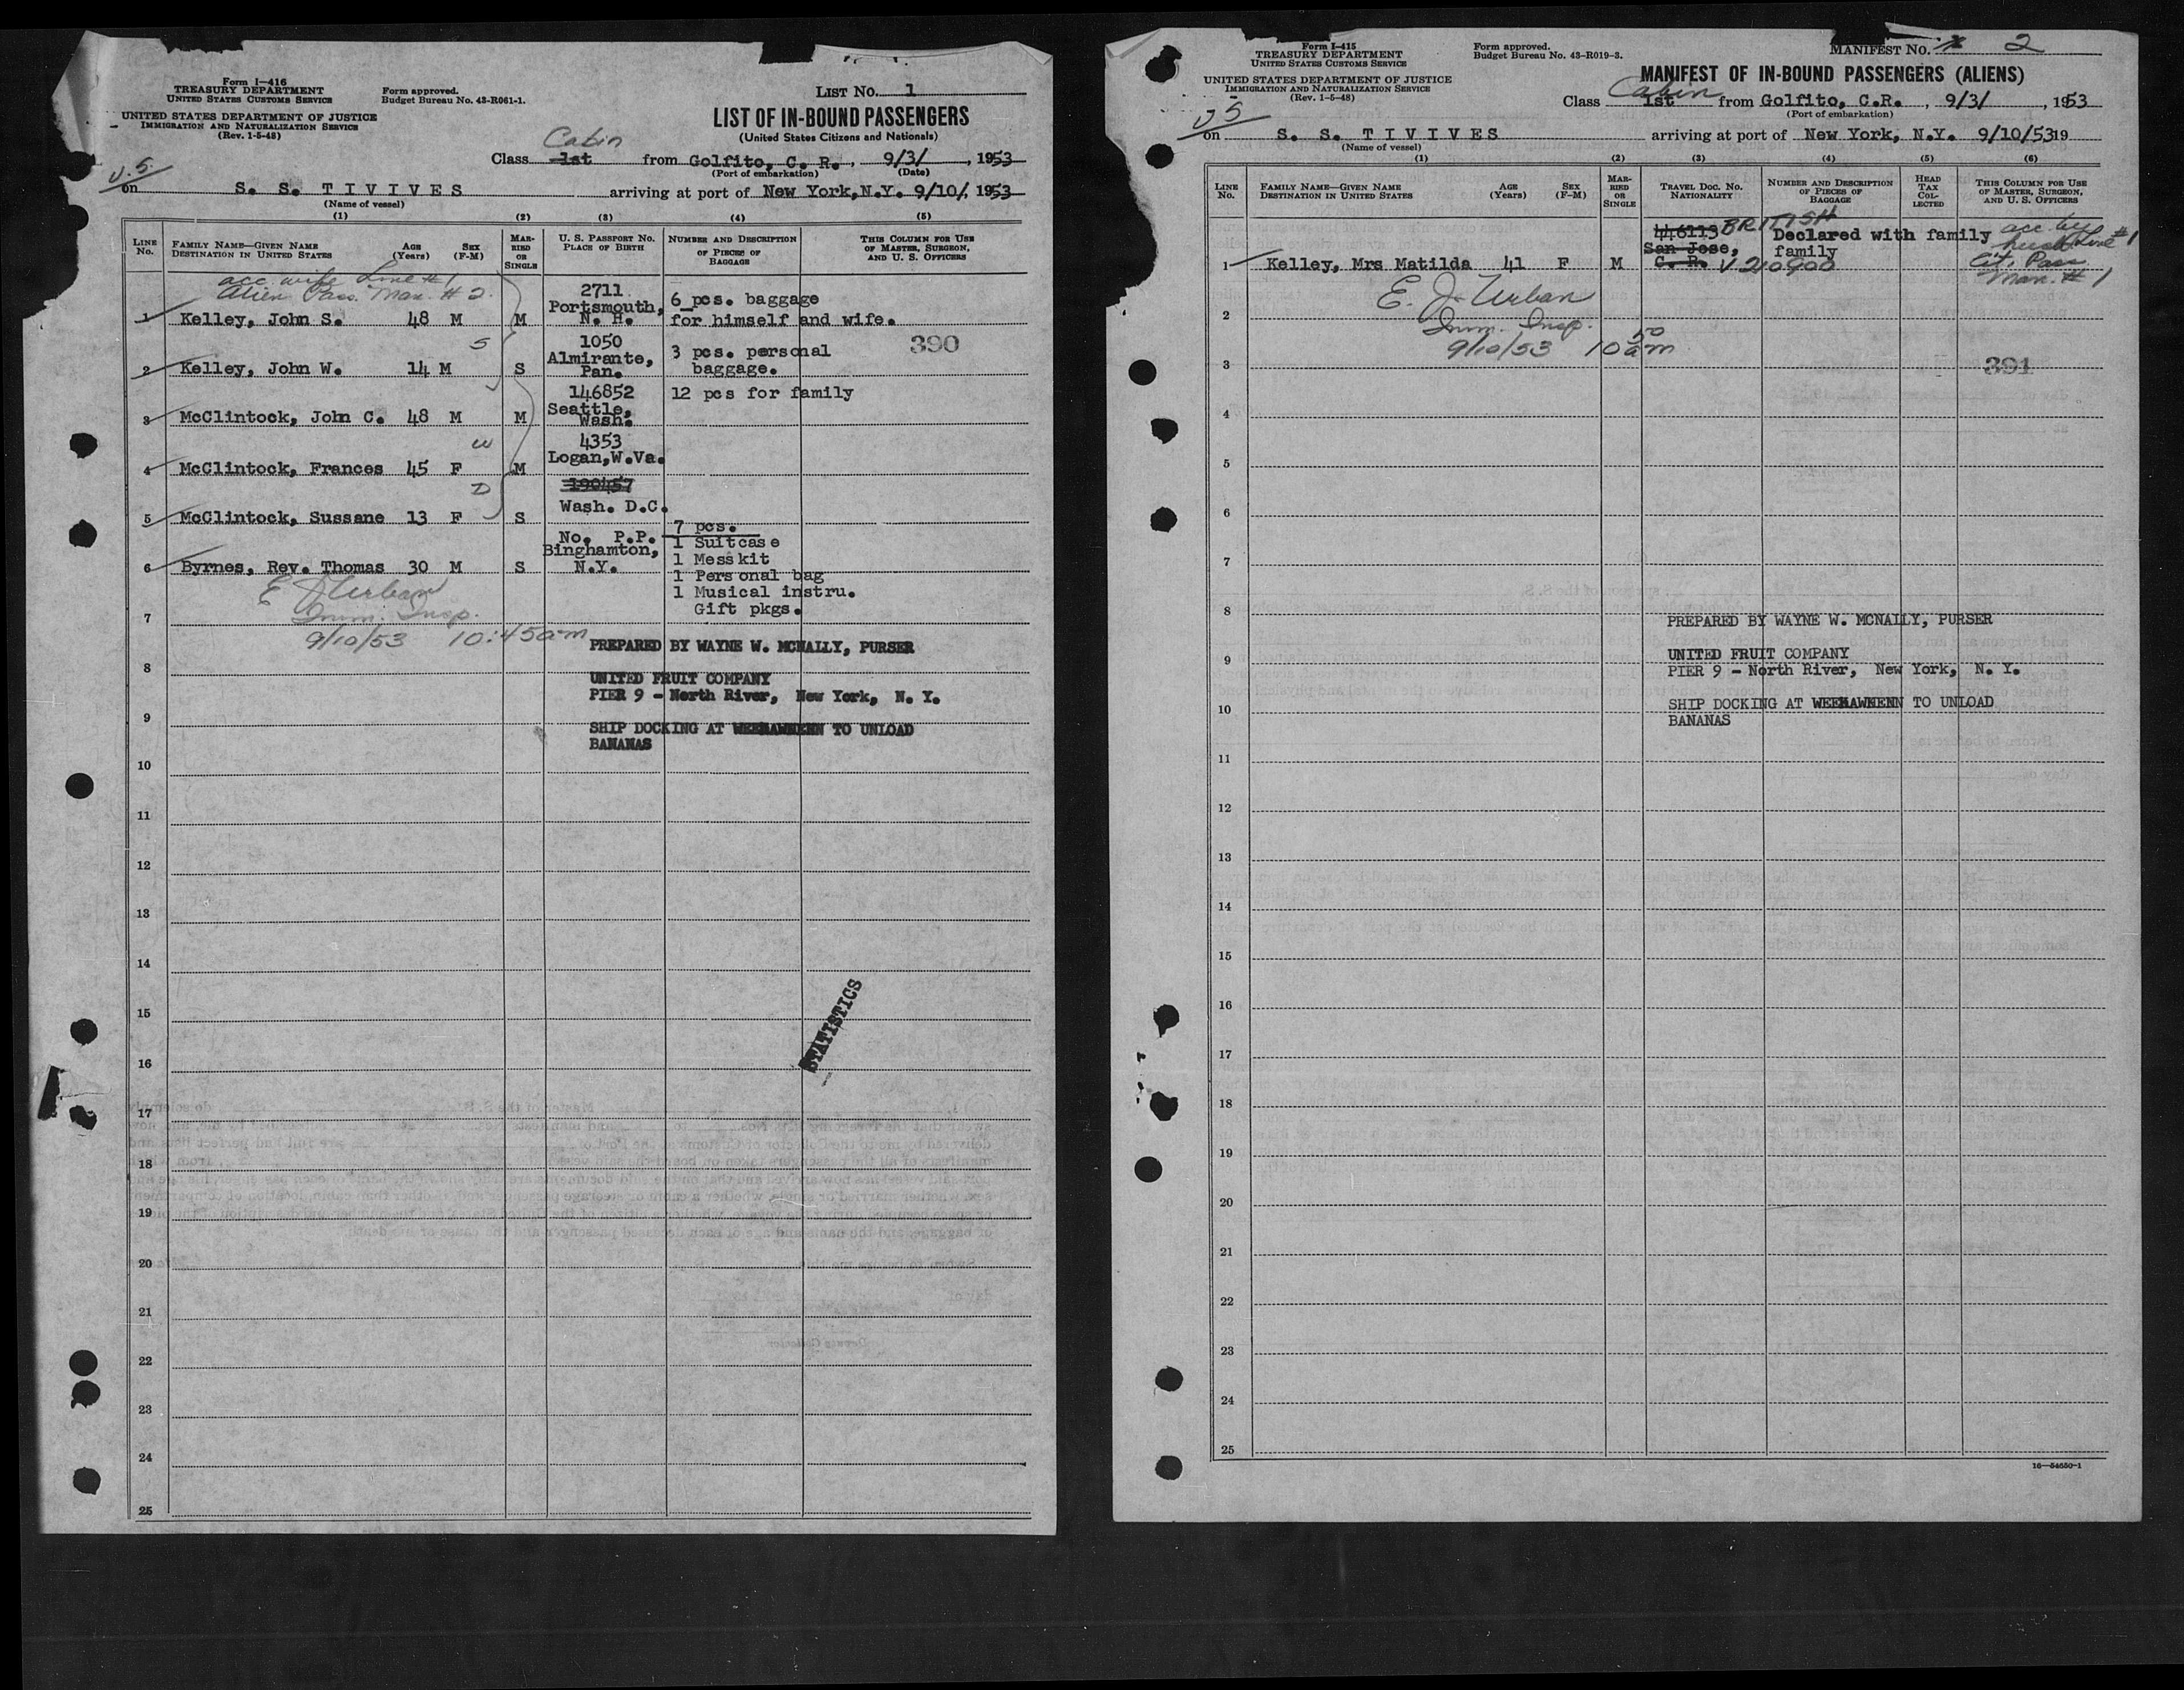 Form I-416
TREASURY DEPARTMENT
UNITED STATES CUSTOMS SERVICE
UNITED STATES DEPARTMENT OF JUSTICE
IMMIGRATION AND NATURALIZATION SERVICE
(Rev. 1-5-48)
Form approved.
Budget Bureau No. 43-R061-1.
LIST NO. 1
LIST OF IN-BOUND PASSENGERS
(United States Citizens and Nationals)
Cabin
Class 1st from Golfito, C. R., 9/3/, 1953
(Port of embarkation) (Date)
U.S.
on S. S. TIVIVES arriving at port of New York, N.Y. 9/10/, 1953
(Name of vessel)
(1) (2) (3) (4) (5)
LINE NO.
FAMILY NAME—GIVEN NAME
DESTINATION IN UNITED STATES
AGE (Years)
SEX (F-M)
MARRIED OR SINGLE
U. S. PASSPORT NO.
PLACE OF BIRTH
NUMBER AND DESCRIPTION OF PIECES OF BAGGAGE
THIS COLUMN FOR USE OF MASTER, SURGEON, AND U. S. OFFICERS
acc wife Line #1
Alien Pass. Man. #2.
1 Kelley, John S. 48 M M 2711 Portsmouth, N. H. 6 pcs. baggage for himself and wife.
390
2 Kelley, John W. 14 M S S 1050 Almirante, Pan. 3 pcs. personal baggage.
3 McClintock, John C. 48 M M 146852 Seattle, Wash. 12 pcs for family
4 McClintock, Frances 45 F W M 4353 Logan, W.Va.
5 McClintock, Sussane 13 F D S 190457 Wash. D.C.
6 Byrnes, Rev. Thomas 30 M S No. P.P. Binghamton, N.Y.
7 pcs.
1 Suitcase
1 Messkit
1 Personal bag
1 Musical instru.
Gift pkgs.
E J Urban
Imm. Insp.
9/10/53 10:45am
7
PREPARED BY WAYNE W. MCNALLY, PURSER
8
UNITED FRUIT COMPANY
PIER 9 - North River, New York, N. Y.
9
SHIP DOCKING AT WEEHAWKENN TO UNLOAD
BANANAS
10
11
12
13
14
15
STATISTICS
16
17
18
19
20
21
22
23
24
25
Form I-415
TREASURY DEPARTMENT
UNITED STATES CUSTOMS SERVICE
UNITED STATES DEPARTMENT OF JUSTICE
IMMIGRATION AND NATURALIZATION SERVICE
(Rev. 1-5-48)
Form approved.
Budget Bureau No. 43-R019-3.
MANIFEST NO. 2
MANIFEST OF IN-BOUND PASSENGERS (ALIENS)
Cabin
Class 1st from Golfito, C.R., 9/3/, 1953
(Port of embarkation)
U S
on S. S. TIVIVES arriving at port of New York, N.Y. 9/10/5319
(Name of vessel)
(1) (2) (3) (4) (5) (6)
LINE NO.
FAMILY NAME—GIVEN NAME
DESTINATION IN UNITED STATES
AGE (Years)
SEX (F-M)
MARRIED OR SINGLE
TRAVEL DOC. NO.
NATIONALITY
NUMBER AND DESCRIPTION OF PIECES OF BAGGAGE
HEAD TAX COLLECTED
THIS COLUMN FOR USE OF MASTER, SURGEON, AND U. S. OFFICERS
446113 BRITISH
San Jose, C. R. V 210900
Declared with family
family
acc by
husb Line #1
Cit. Pass.
Man. #1
1 Kelley, Mrs Matilda 41 F M
E. J. Urban
2
Imm. Insp.
9/10/53 10 50 am
3
391
4
5
6
7
8
PREPARED BY WAYNE W. MCNALLY, PURSER
9
UNITED FRUIT COMPANY
PIER 9 - North River, New York, N. Y.
10
SHIP DOCKING AT WEEHAWKENN TO UNLOAD
BANANAS
11
12
13
14
15
16
17
18
19
20
21
22
23
24
25
16—54650-1